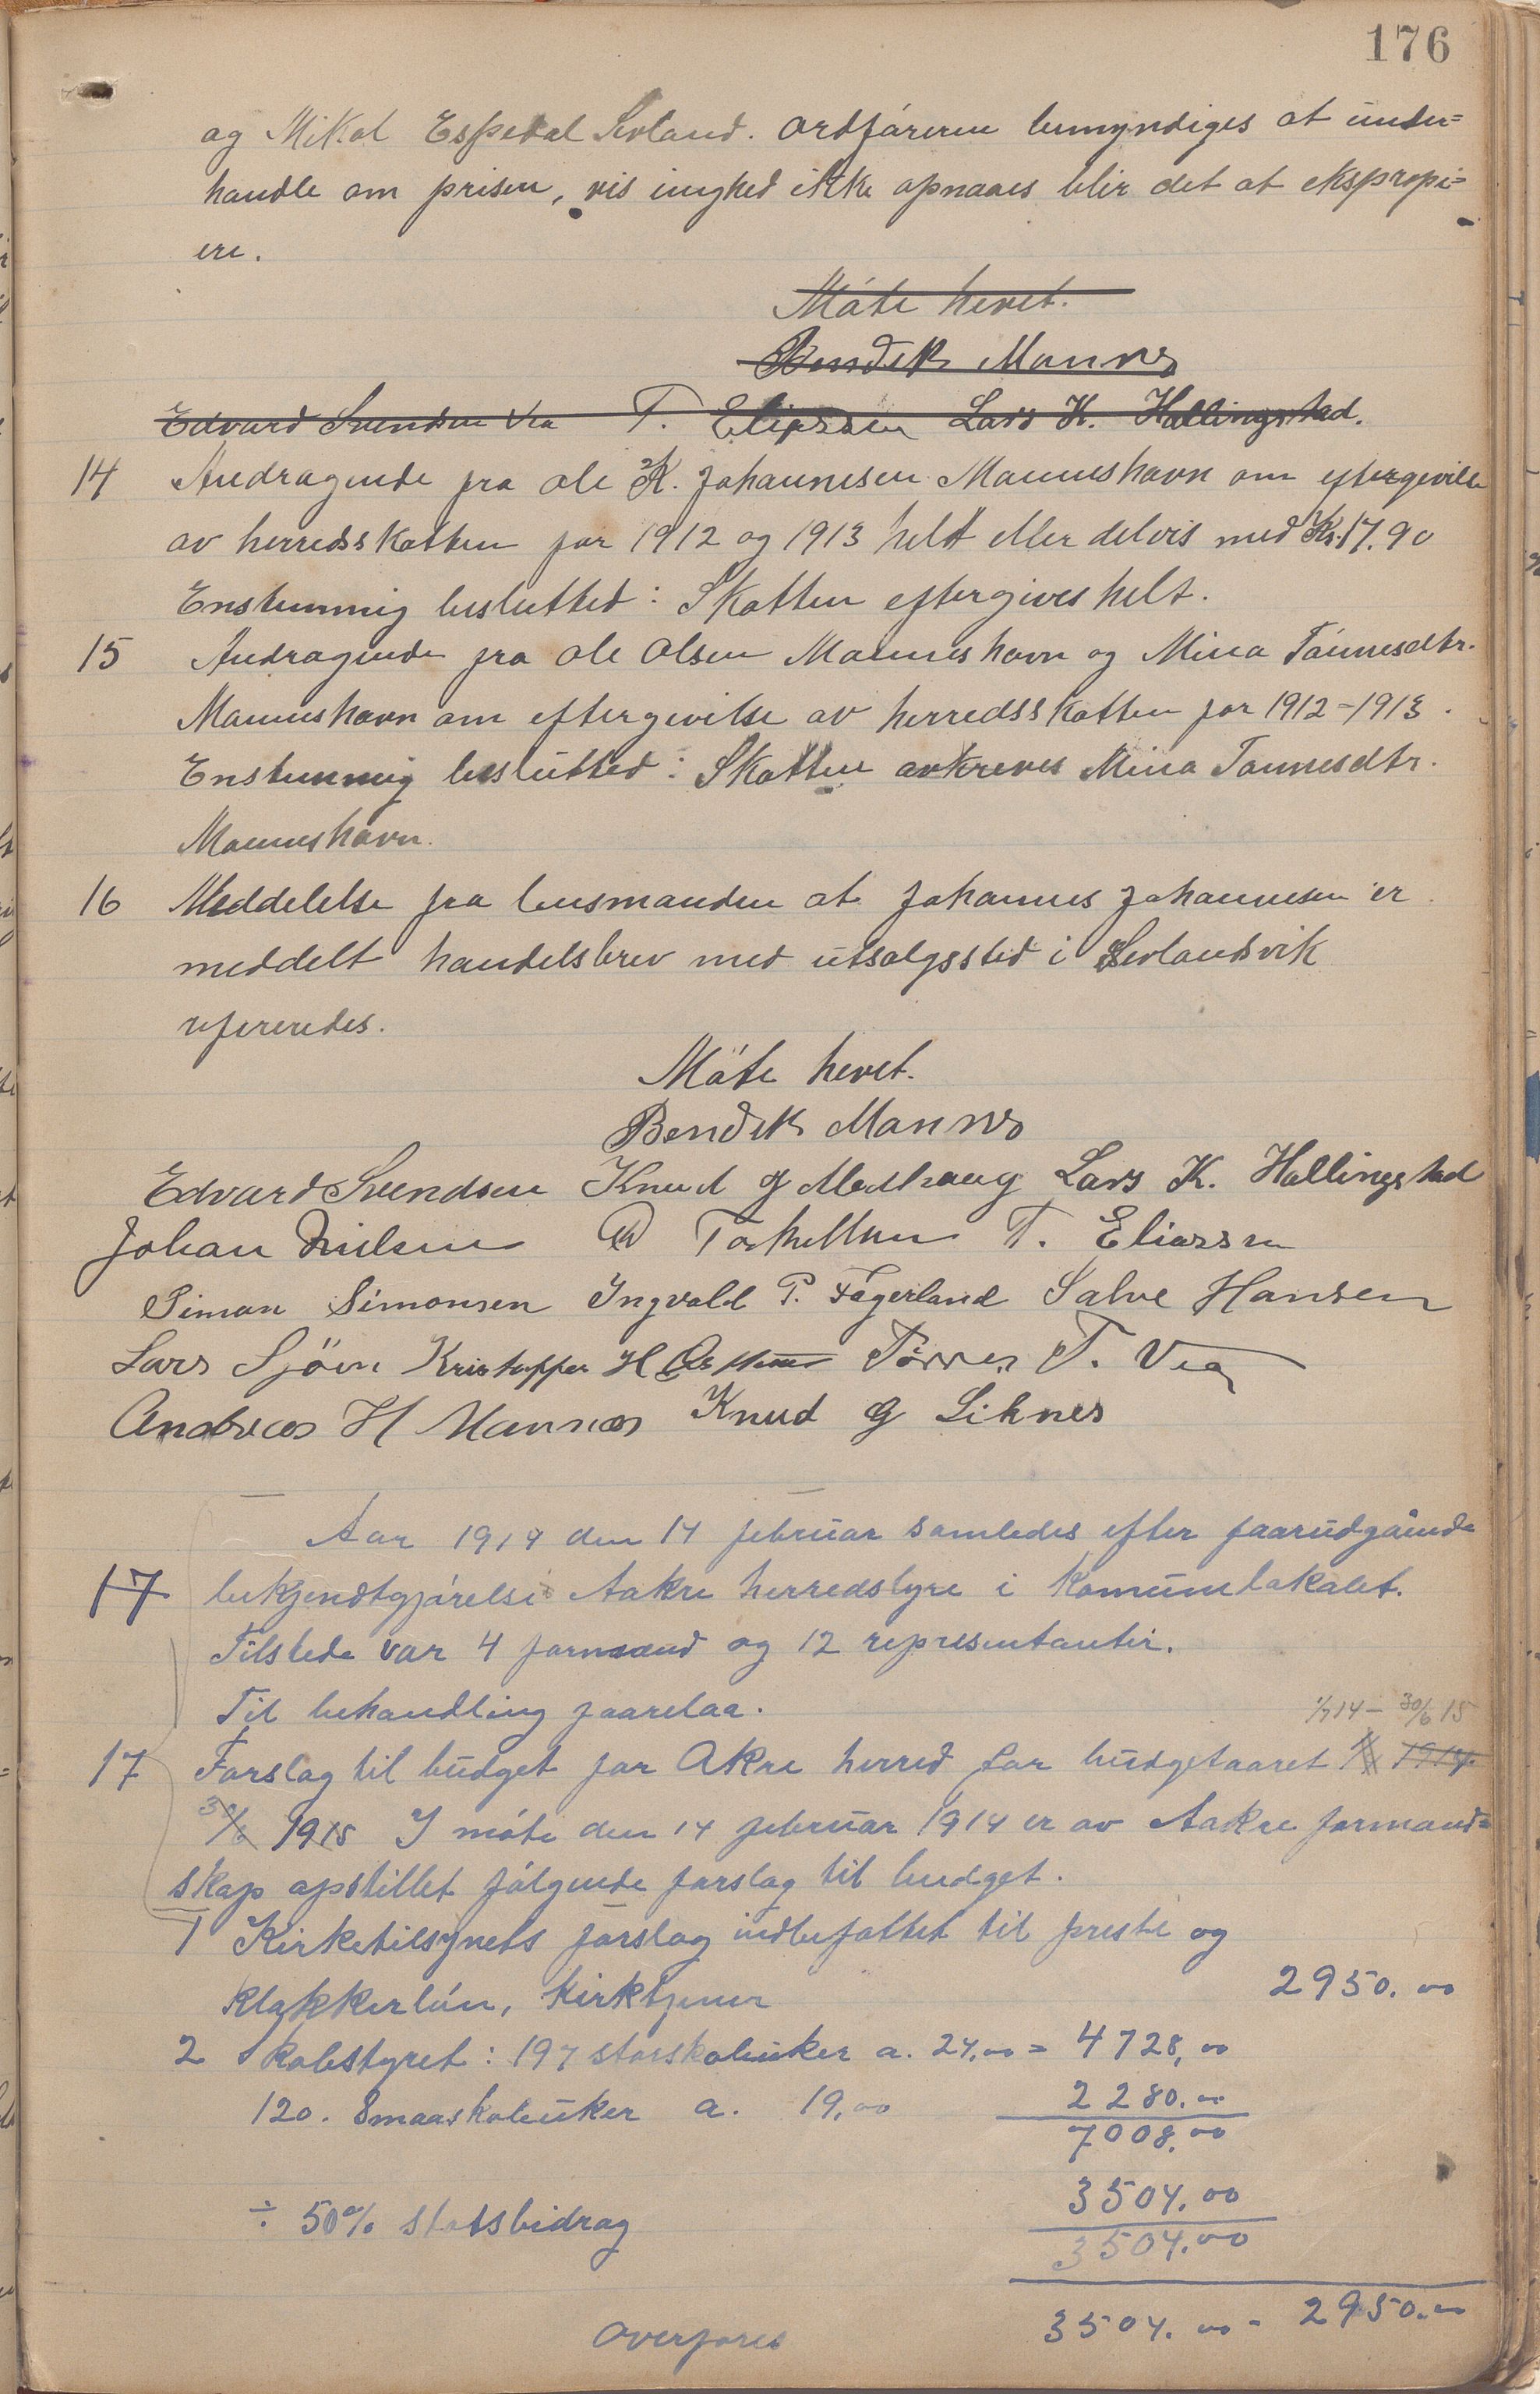 176
og Mikal Espedal Sevland. Ordføreren bemyndiges at under=
handle om prisen, vis inghed ikke opnaaes blir det at ekspropi=
ere.
Møte hevet.
Bendik Mannes
Edvard Svendsen Vea T. Eliassen Lars K. Hallingstad.
14 Andragende fra Ole K. Johannesen Manneshavn om eftergivelse
av herredsskatten for 1912 og 1913 helt eller delvis med Kr. 17.90
Enstemmig besluttet: Skatten eftergives helt.
15 Andragende fra Ole Olsen Manneshavn og Mina Tönnesdtr.
Manneshavn om eftergivelse av herredsskatten for 1912-1913.
Enstemmig besluttet: Skatten avkreves Mina Tønnesdtr.
Manneshavn.
16 Meddelelse fra lensmanden at Johannes Johannesen er
meddelt handelsbrev med utsalgssted i Sevlandsvik
refereredes.
Møte hevet.
Bendik Mannes
Edvard Svendsen Knud G Medhaug Lars K. Hallingstad
Johan Nilsen Torkellsen T. Eliassen
Simon Simonsen Ingvald P. Fagerland Salve Hansen
Lars Sjöen Kristoffer H Tørres T. Vea
Andreas H Mannes Knud G Liknes
Aar 1914 den 14 februar samledes efter foorudgåænde
17 bekjendtgjørelse Aakre herredstyre i Komunelokalet.
Tilstede var 4 formænd og 12 representanter.
Til behandling foorelaa.
1/7 14 - 30/6 15
17 Forslag til budget for Akre herred for budgetaaret 1/7 1914
30/6 1915 I møte den 14 februar 1914 er av Aakre formand=
skap opstillet følgende forslag til budget.
1 Kirketilsynets forslag indbefattet til preste og
klokkerløn, Kirketjener 2950.00
2 Skolestyret: 197 storskoleuker a. 24,00 = 4728,00
120. Smaaskoleuker a. 19,00 2280.00
7008.00
3504.00
÷ 50% statsbidrag
3504.00
Overføres 3504.00 - 2950.00